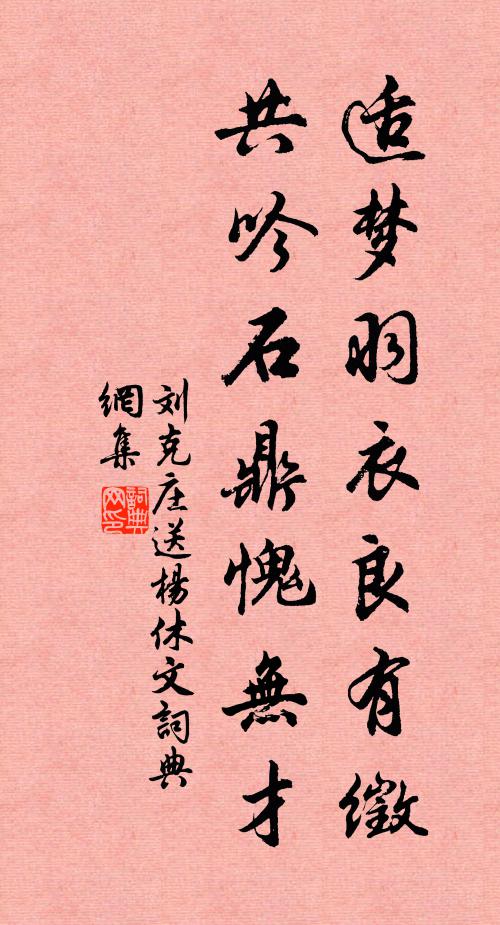 适梦羽衣良有徵
共吟石鼎愧無才
刘克庄送楊休文詞典
網集
詞典网印